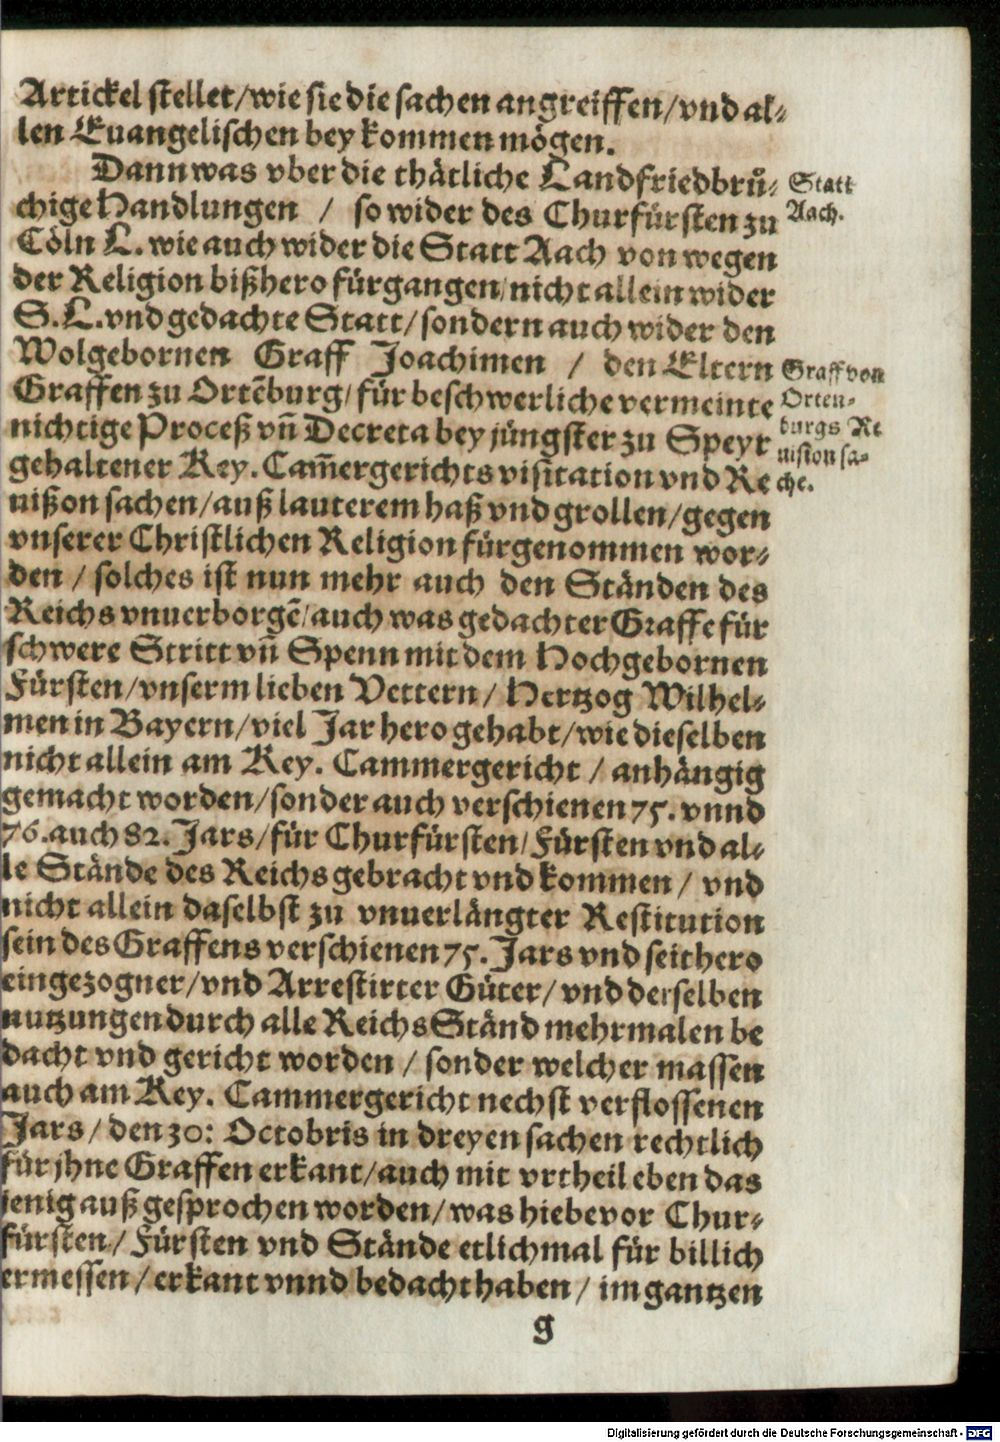 Artickel stellet/wie sie die sachen angreiffen/vnd al⸗
len Euangelischen bey kommen mögen.
Dann was vber die thätliche Landfriedbrü⸗
chige Handlungen / so wider des Churfürsten zu
Cöln L. wie auch wider die Statt Aach von wegen
der Religion bißhero fürgangen/nicht allein wider
S.L. vnd gedachte Statt/sondern auch wider den
Wolgebornen Graff Joachimen / den Eltern
Graffen zu Ortēburg/für beschwerliche vermeinte
nichtige Proceß vn̄ Decreta bey jüngster zu Speyr
gehaltener Key. Cam̄ergerichts visitation vnd Re
uißon sachen/auß lauterem haß vnd grollen/gegen
vnserer Christlichen Religion fürgenommen wor⸗
den / solches ist nun mehr auch den Ständen des
Reichs vnuerborgē/auch was gedachter Graffe für
schwere Stritt vn̄ Spenn mit dem Hochgebornen
Fürsten/vnserm lieben Vettern / Hertzog Wilhel⸗
men in Bayern/viel Jar hero gehabt/wie dieselben
nicht allein am Key. Cammergericht / anhängig
gemacht worden/sonder auch verschienen 75. vnnd
76. auch 82. Jars/für Churfürsten/Fürsten vnd al⸗
le Stände des Reichs gebracht vnd kommen / vnd
nicht allein daselbst zu vnuerlängter Restitution
sein des Graffens verschienen 75. Jars vnd seithero
eingezogner/vnd Arrestirter Güter/vnd derselben
nutzungen durch alle Reichs Ständ mehrmalen be
dacht vnd gericht worden / sonder welcher massen
auch am Key. Cammergericht nechst verflossenen
Jars/den 30: Octobris in dreyen sachen rechtlich
für jhne Graffen erkant/auch mit vrtheil eben das
jenig auß gesprochen worden/was hiebevor Chur⸗
fürsten/Fürsten vnd Stände etlichmal für billich
ermessen/erkant vnnd bedacht haben / im gantzen
g
Statt
Aach.
Graff von
Orten⸗
burgs Re
uision sa⸗
che.
Digitalisierung gefördert durch die Deutsche Forschungsgemeinschaft - DFG